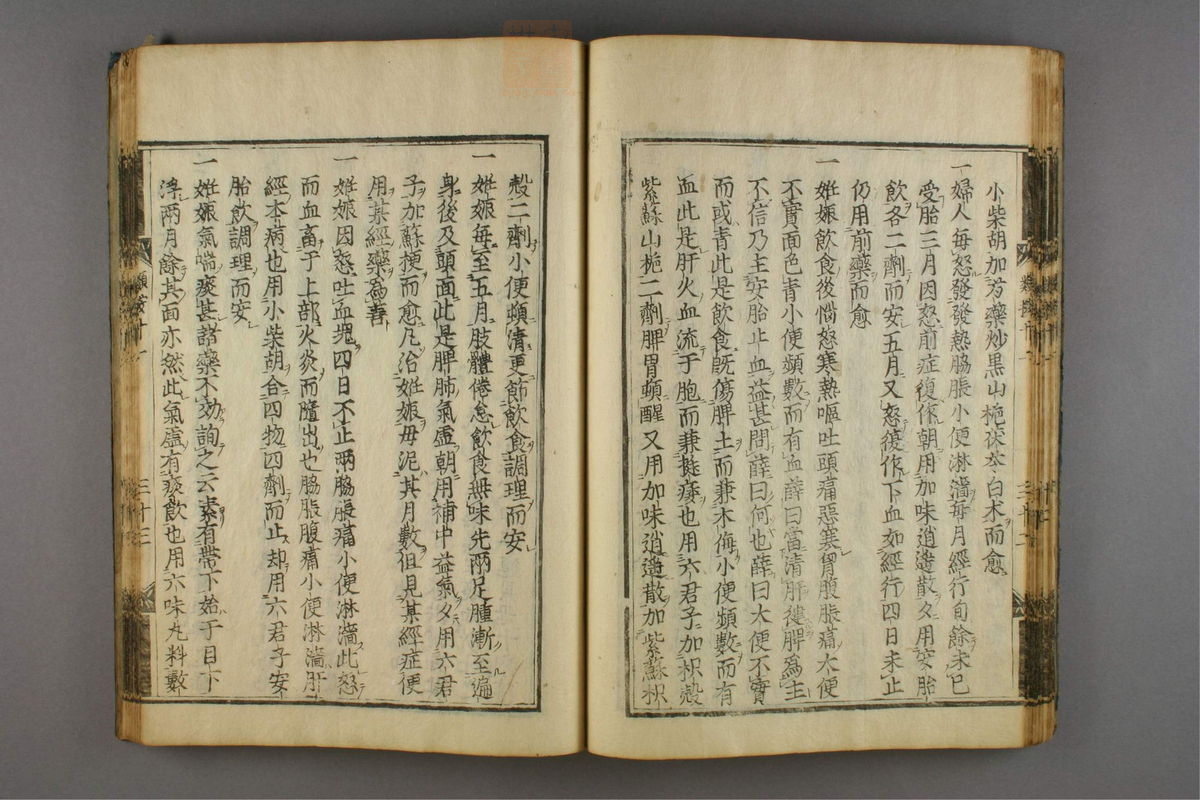 小柴胡加芍藥炒黒山梔茯苓白朮而愈
一婦人毎怒發發熱脇脹小便淋濇毎月經行旬餘未已
受胎三月因怒前症復作朝用加味逍遙散夕用安胎
飲各二劑而安五月又怒復作下血如經行四日未止
仍用前藥而愈
一妊娠飲食後惱怒寒熱嘔吐頭痛惡寒胃腹脹痛大便
不實面色青小便頻數而有血薛曰當清肝健脾為主
不信乃主安胎止血益甚問薛曰何也薛曰大便不實
而或青此是飲食既傷脾土而兼木侮小便頻數而有
血此是肝火血流于胞而兼挺痿也用六君子加枳殻
紫蘇山梔二劑脾胃頓醒又用加味逍遙散加紫蘇枳
殻二劑小便頓清更節飲食調理而安
一妊娠毎至五月肢體倦怠飲食無味先兩足腫漸至遍
身後及頭面此是脾肺氣虛朝用補中益氣夕用六君
子加蘇梗而愈凡治妊娠毋泥其月數但見某經症便
用某經藥為善
一妊娠因怒吐血塊四日不止兩脇脹痛小便淋濇此怒
而血畜于上部火炎而隨出也脇脹腹痛小便淋濇肝
經本病也用小柴胡合四物四劑而止却用六君子安
胎飲調理而安
一妊娠氣喘痰甚諸藥不効詢之云素有帶下始于目下
浮兩月餘其面亦然此氣虛有痰飲也用六味丸料數
三十二
三十三